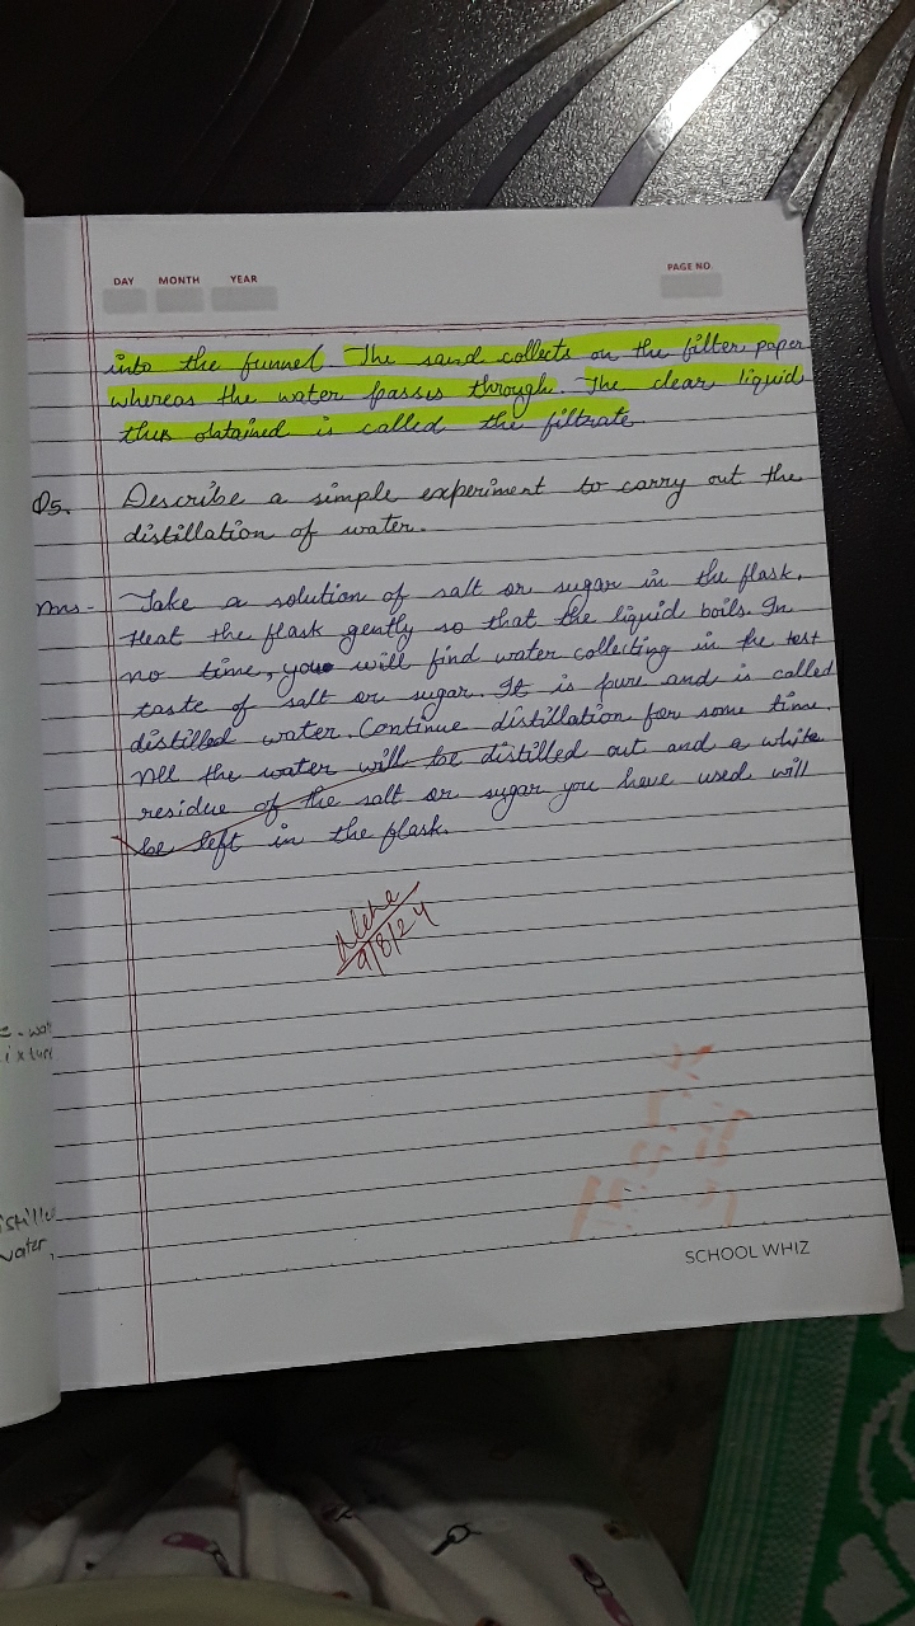 DAY MONTH YEAR
PAGE NO.
into the funnel. The sand collects on the filter paper
whereas the water passes through. The clear liquid
thus obtained is called the filtrate.
Q5. Describe a simple experiment to carry out the
distillation of water.
Ans - Take a solution of salt or sugar in the flask.
Heat the flask gently so that the liquid boils. In
no time, you will find water collecting in the test
taste of salt or sugar. It is pure and is called
distilled water. Continue distillation for some time.
All the water will be distilled out and a white
residue of the salt or sugar you have used will
be left in the flask.
9/8/24
SCHOOL WHIZ